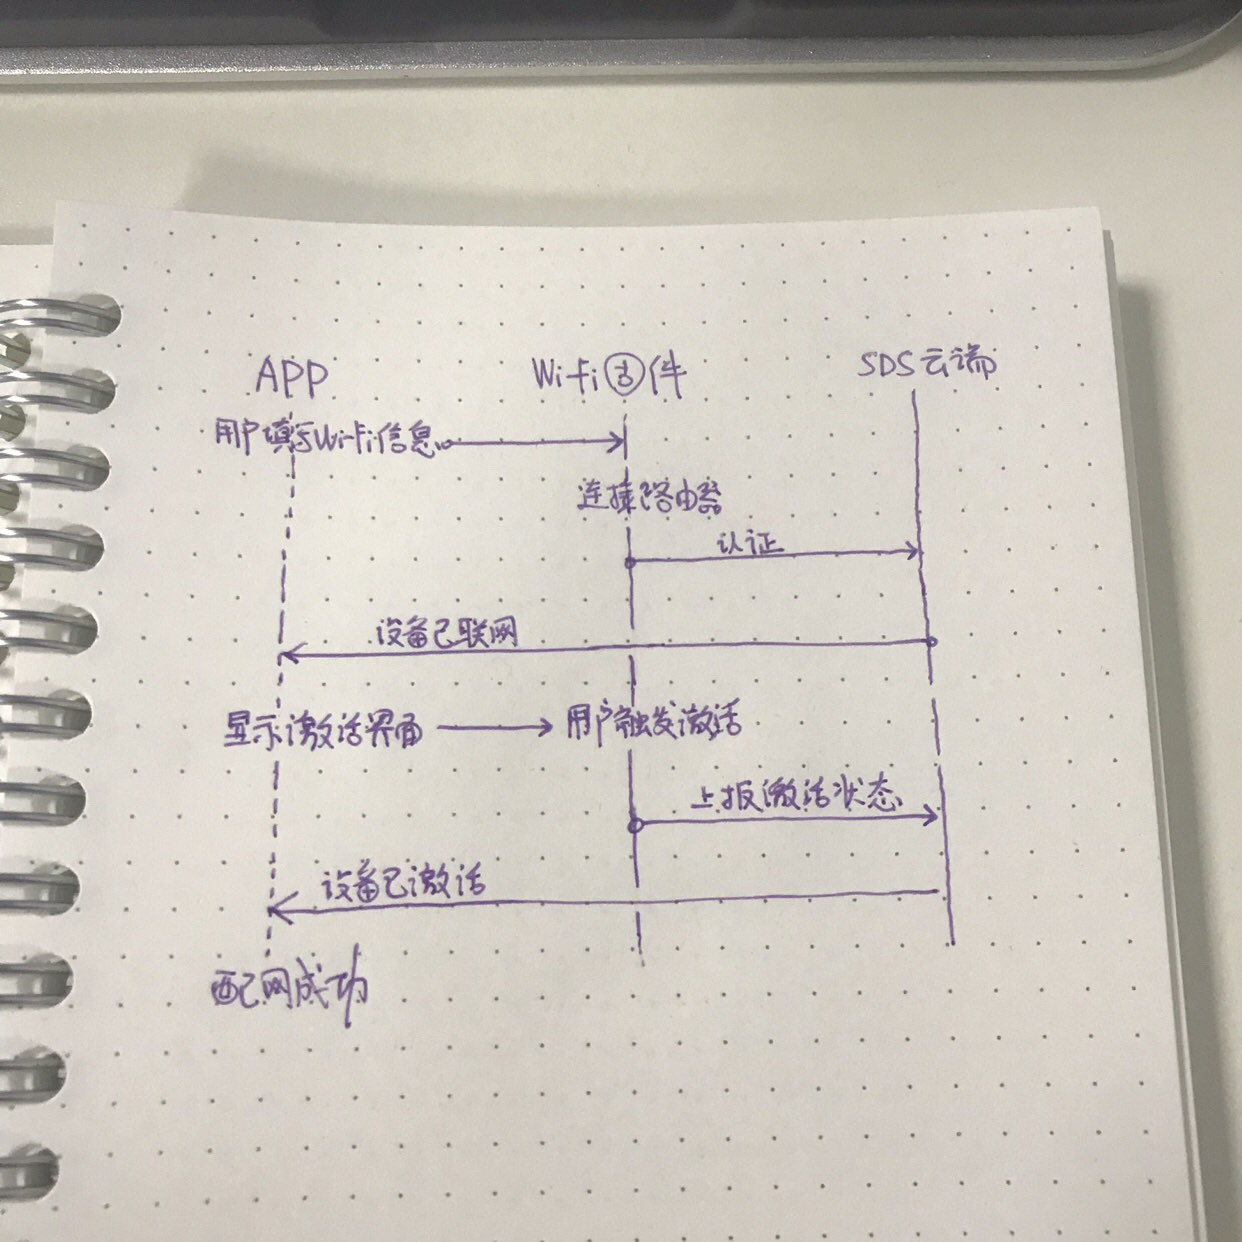 APP
Wifi固件
SDS云端
用户填写Wi-Fi信息
连接路由器
认证
设备已联网
显示激活界面
用户触发激活
上报激活状态
设备已激活
配网成功